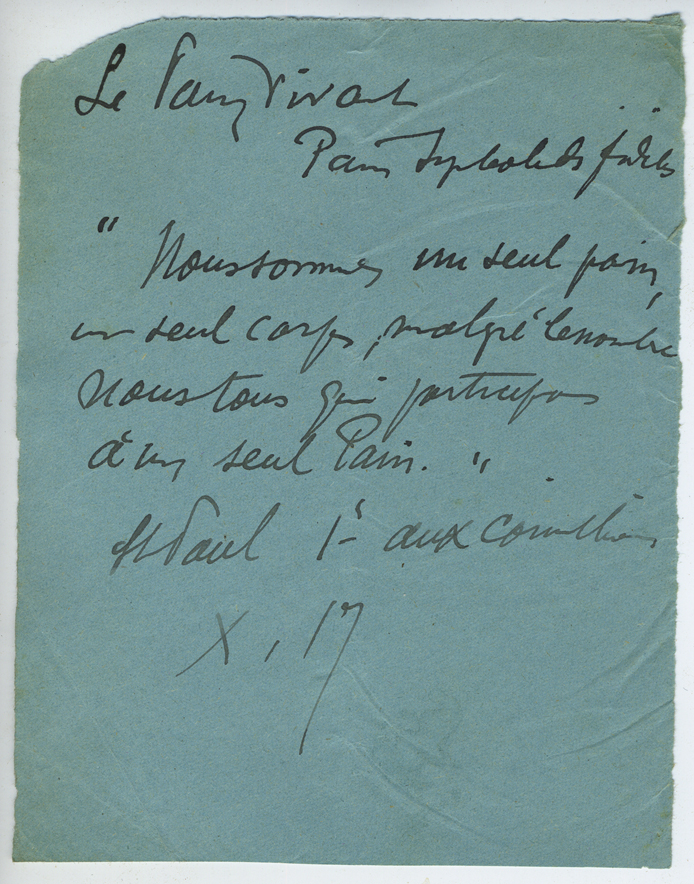 Le Pain Vivant
Pain Symbole des fidèles
" Nous sommes un seul pain,
un seul corps, malgré le nombre
nous tous qui participons
à un seul Pain. "
St Paul 1è aux Corinthiens
X, 17